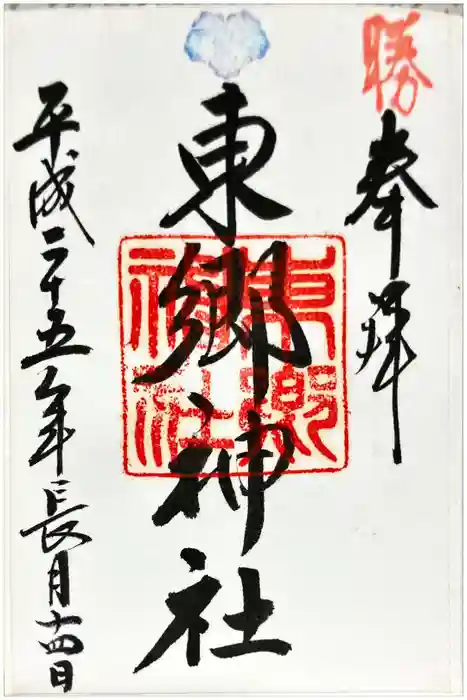 勝
奉拝
東郷神社
東郷神社
平成二十五年長月十四日